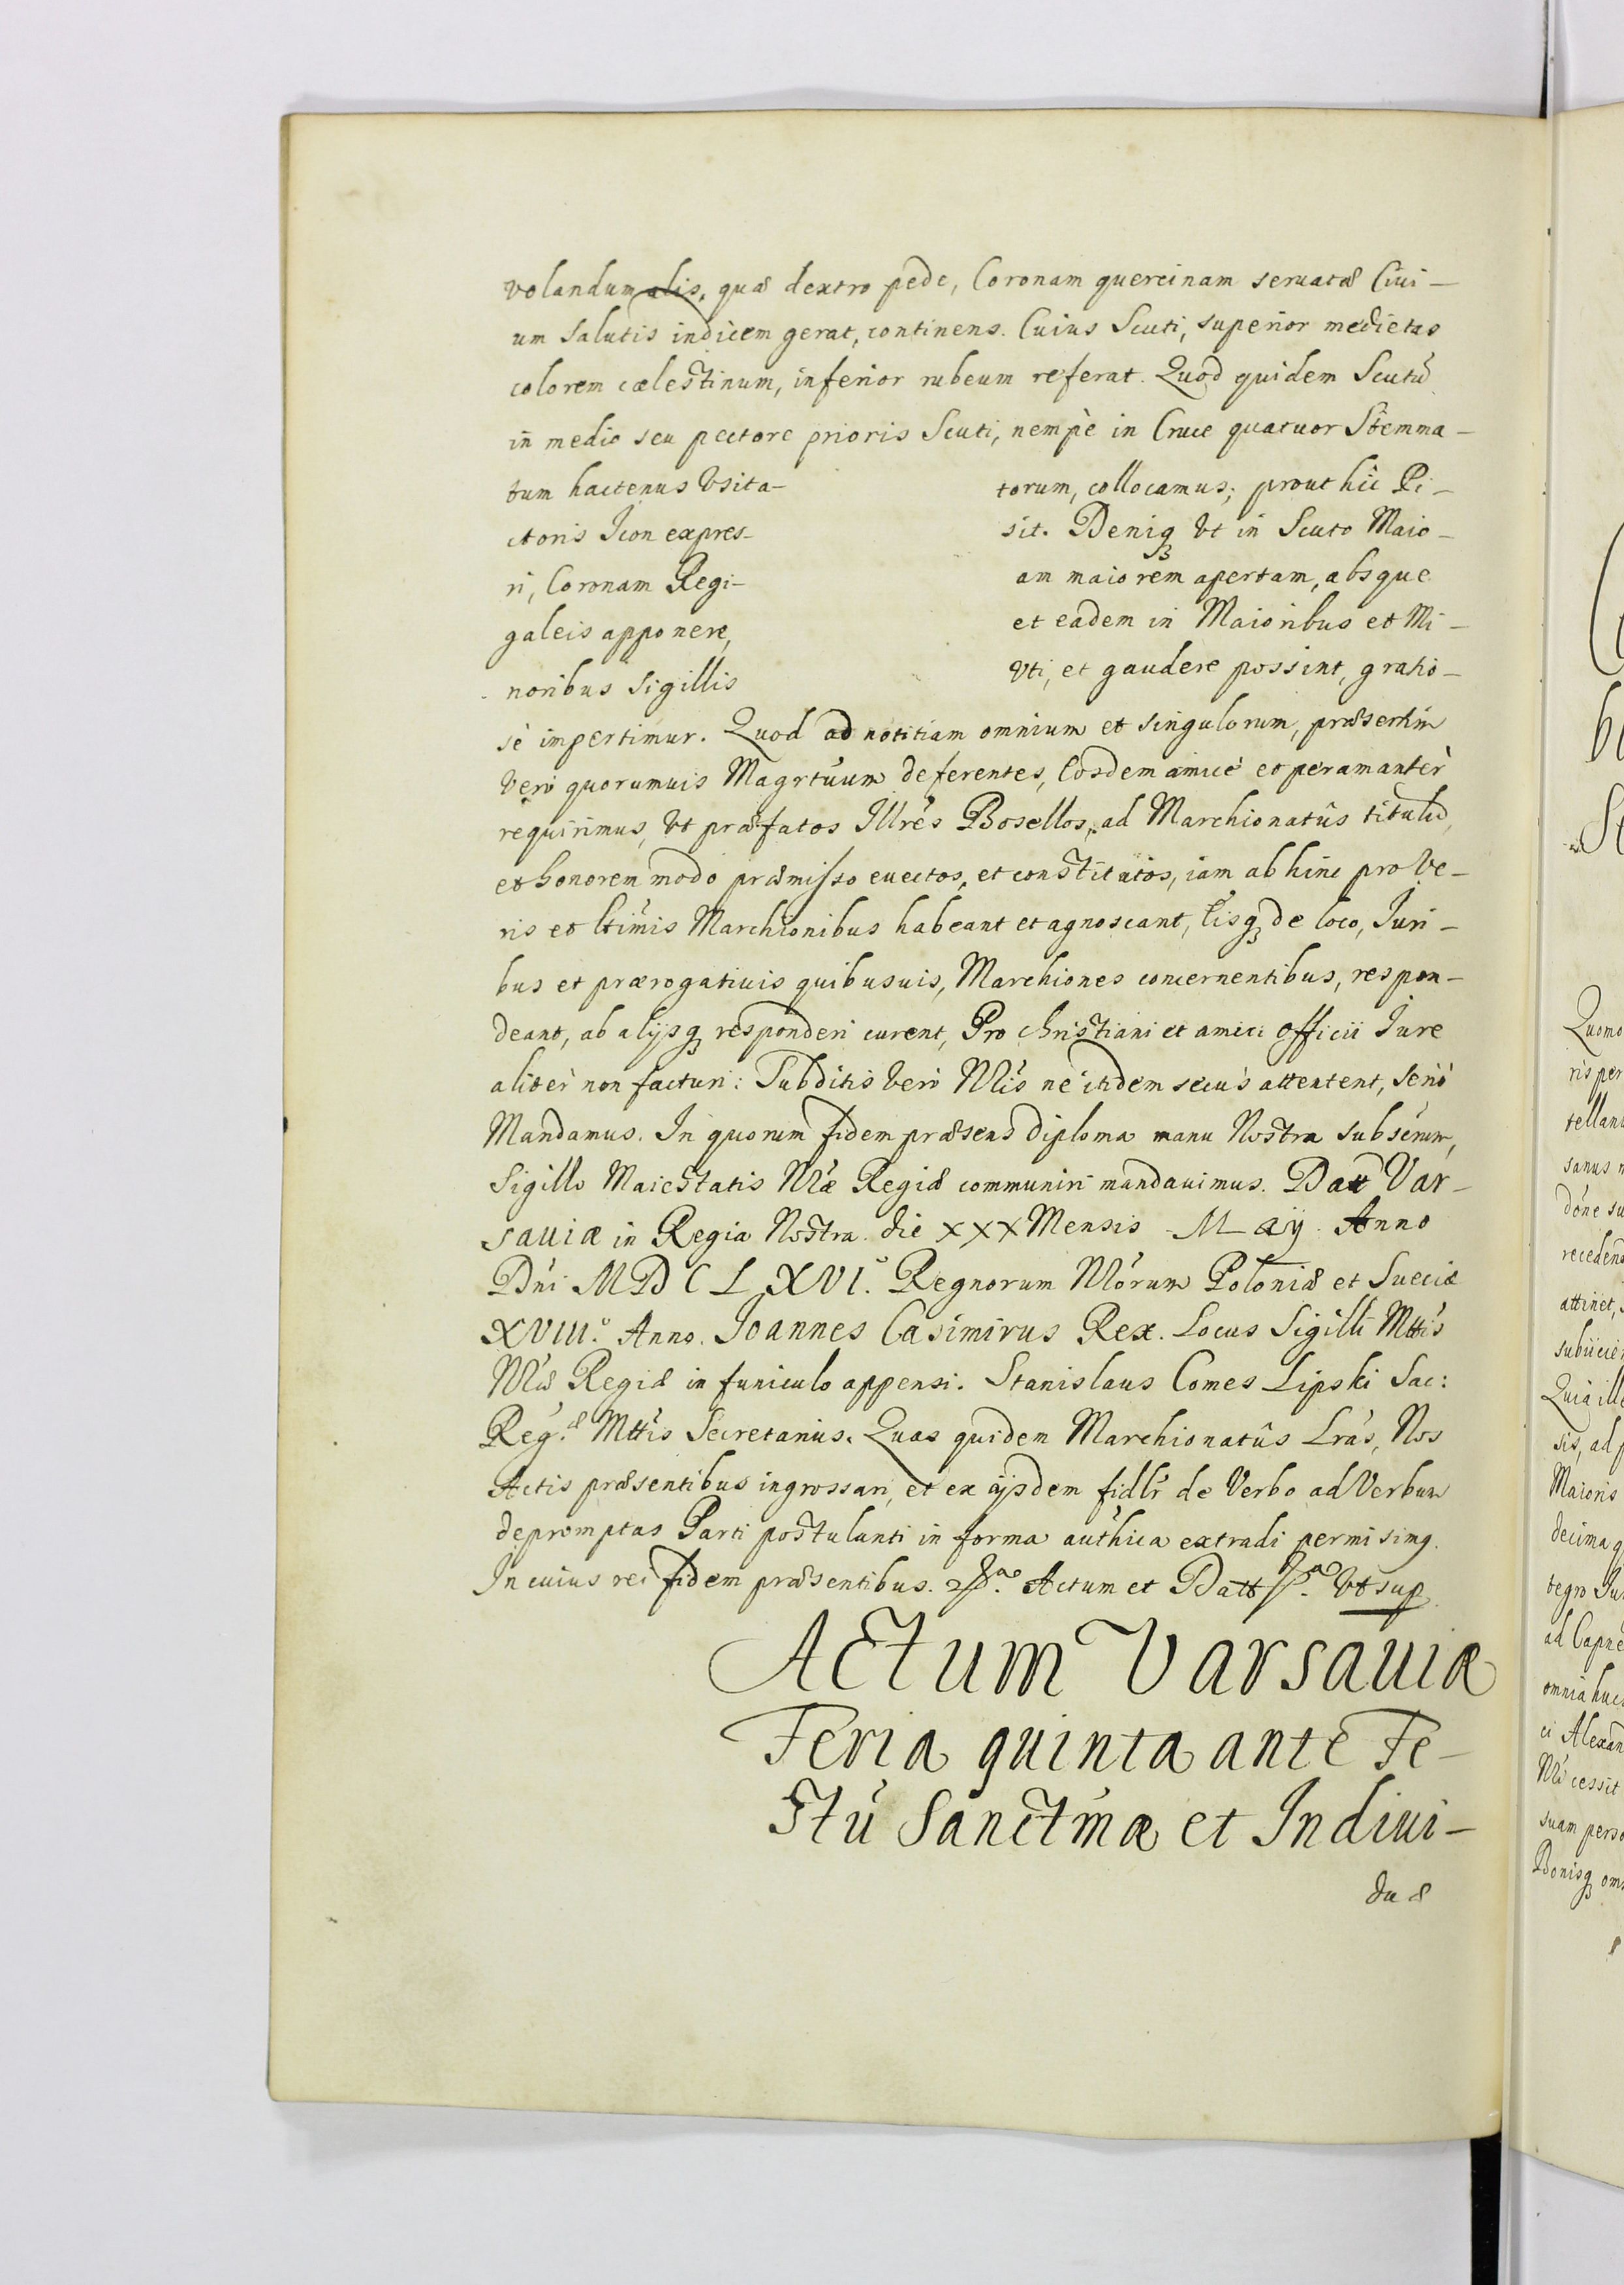 volandum alis, quæ dextro pede, Coronam quercinam seruatæ Ciui-
um Salutis indicem gerat, continens. Cuius Scuti, superior medietas
colorem cælestinum, inferior rubeum referat. Quod quidem Scutũ
in medio seu pectore prioris Scuti, nempè in Cruce quatuor Stemma-
tum hactenus Vsita- torum, collocamus; prout hic Pi-
ctoris Icon expres- sit. Deniq₃ Vt in Scuto Maio-
ri, Coronam Regi- am maiorem apertam, absque
galeis apponere, et eadem in Maioribus et Mi-
noribus Sigillis Vti, et gaudere possint, gratio-
sè impertimur. Quod ad notitiam omnium et singulorum, præsertim
Verò quorumuis Magrtũum deferentes, Eosdem amicè et peramantèr
requirimus, Vt præfatos Illrés Bosellos, ad Marchionatûs titulũ,
et honorem modo præmisso euectos, et constitutos, iam ab hinc pro Ve-
ris et ltimis Marchionibus habeant et agnoscant, Eisq₃ de loco, Juri-
bus et prærogatiuis quibusuis, Marchiones concernentibus, respon-
deant, ab alijsq₃ responderi curent, Pro Christiani et amici officii Jure
alitèr non facturi: Subditis Verò Nris ne itidem secùs attentent, Seriò
Mandamus. In quorum fidem præsens diploma manu Nostra subscrim,
Sigillo Maiestatis Nræ Regiæ communiri mandauimus. Datt Var-
sauiæ in Regia Nostra die XXX Mensis Maÿ Anno
Dni MDCLXVI.º Regnorum Nrorum Poloniæ et Sueciæ
XVIII.º Anno. Joannes Casimirus Rex. Locus Sigilli Mttis
Nræ Regiæ in funiculo appensi. Stanislaus Comes Lipski Sac:
Reg.æ Mttis Secretarius. Quas quidem Marchionatûs Lrás, Nos
Actis præsentibus ingrossari, et ex ijsdem fidlr de Verbo ad Verbum
depromptas Parti postulanti in forma authica extradi permisimq.
In cuius rei fidem præsentibus. Actum et Datt Vt sup
Actum Varsauiæ
Feria quinta ante Fe-
stũ Sanctmæ et Indiui-
duæ
Quomo
ris per
tellant
sanus
recedens
attinet,
subiicien
Quia ill
sis, ad p
Maioris
decima q
tegro Iu
ad Capne
omnia huc
ei Alexan
Nri cessit
suam perso
Bonisq₃ om